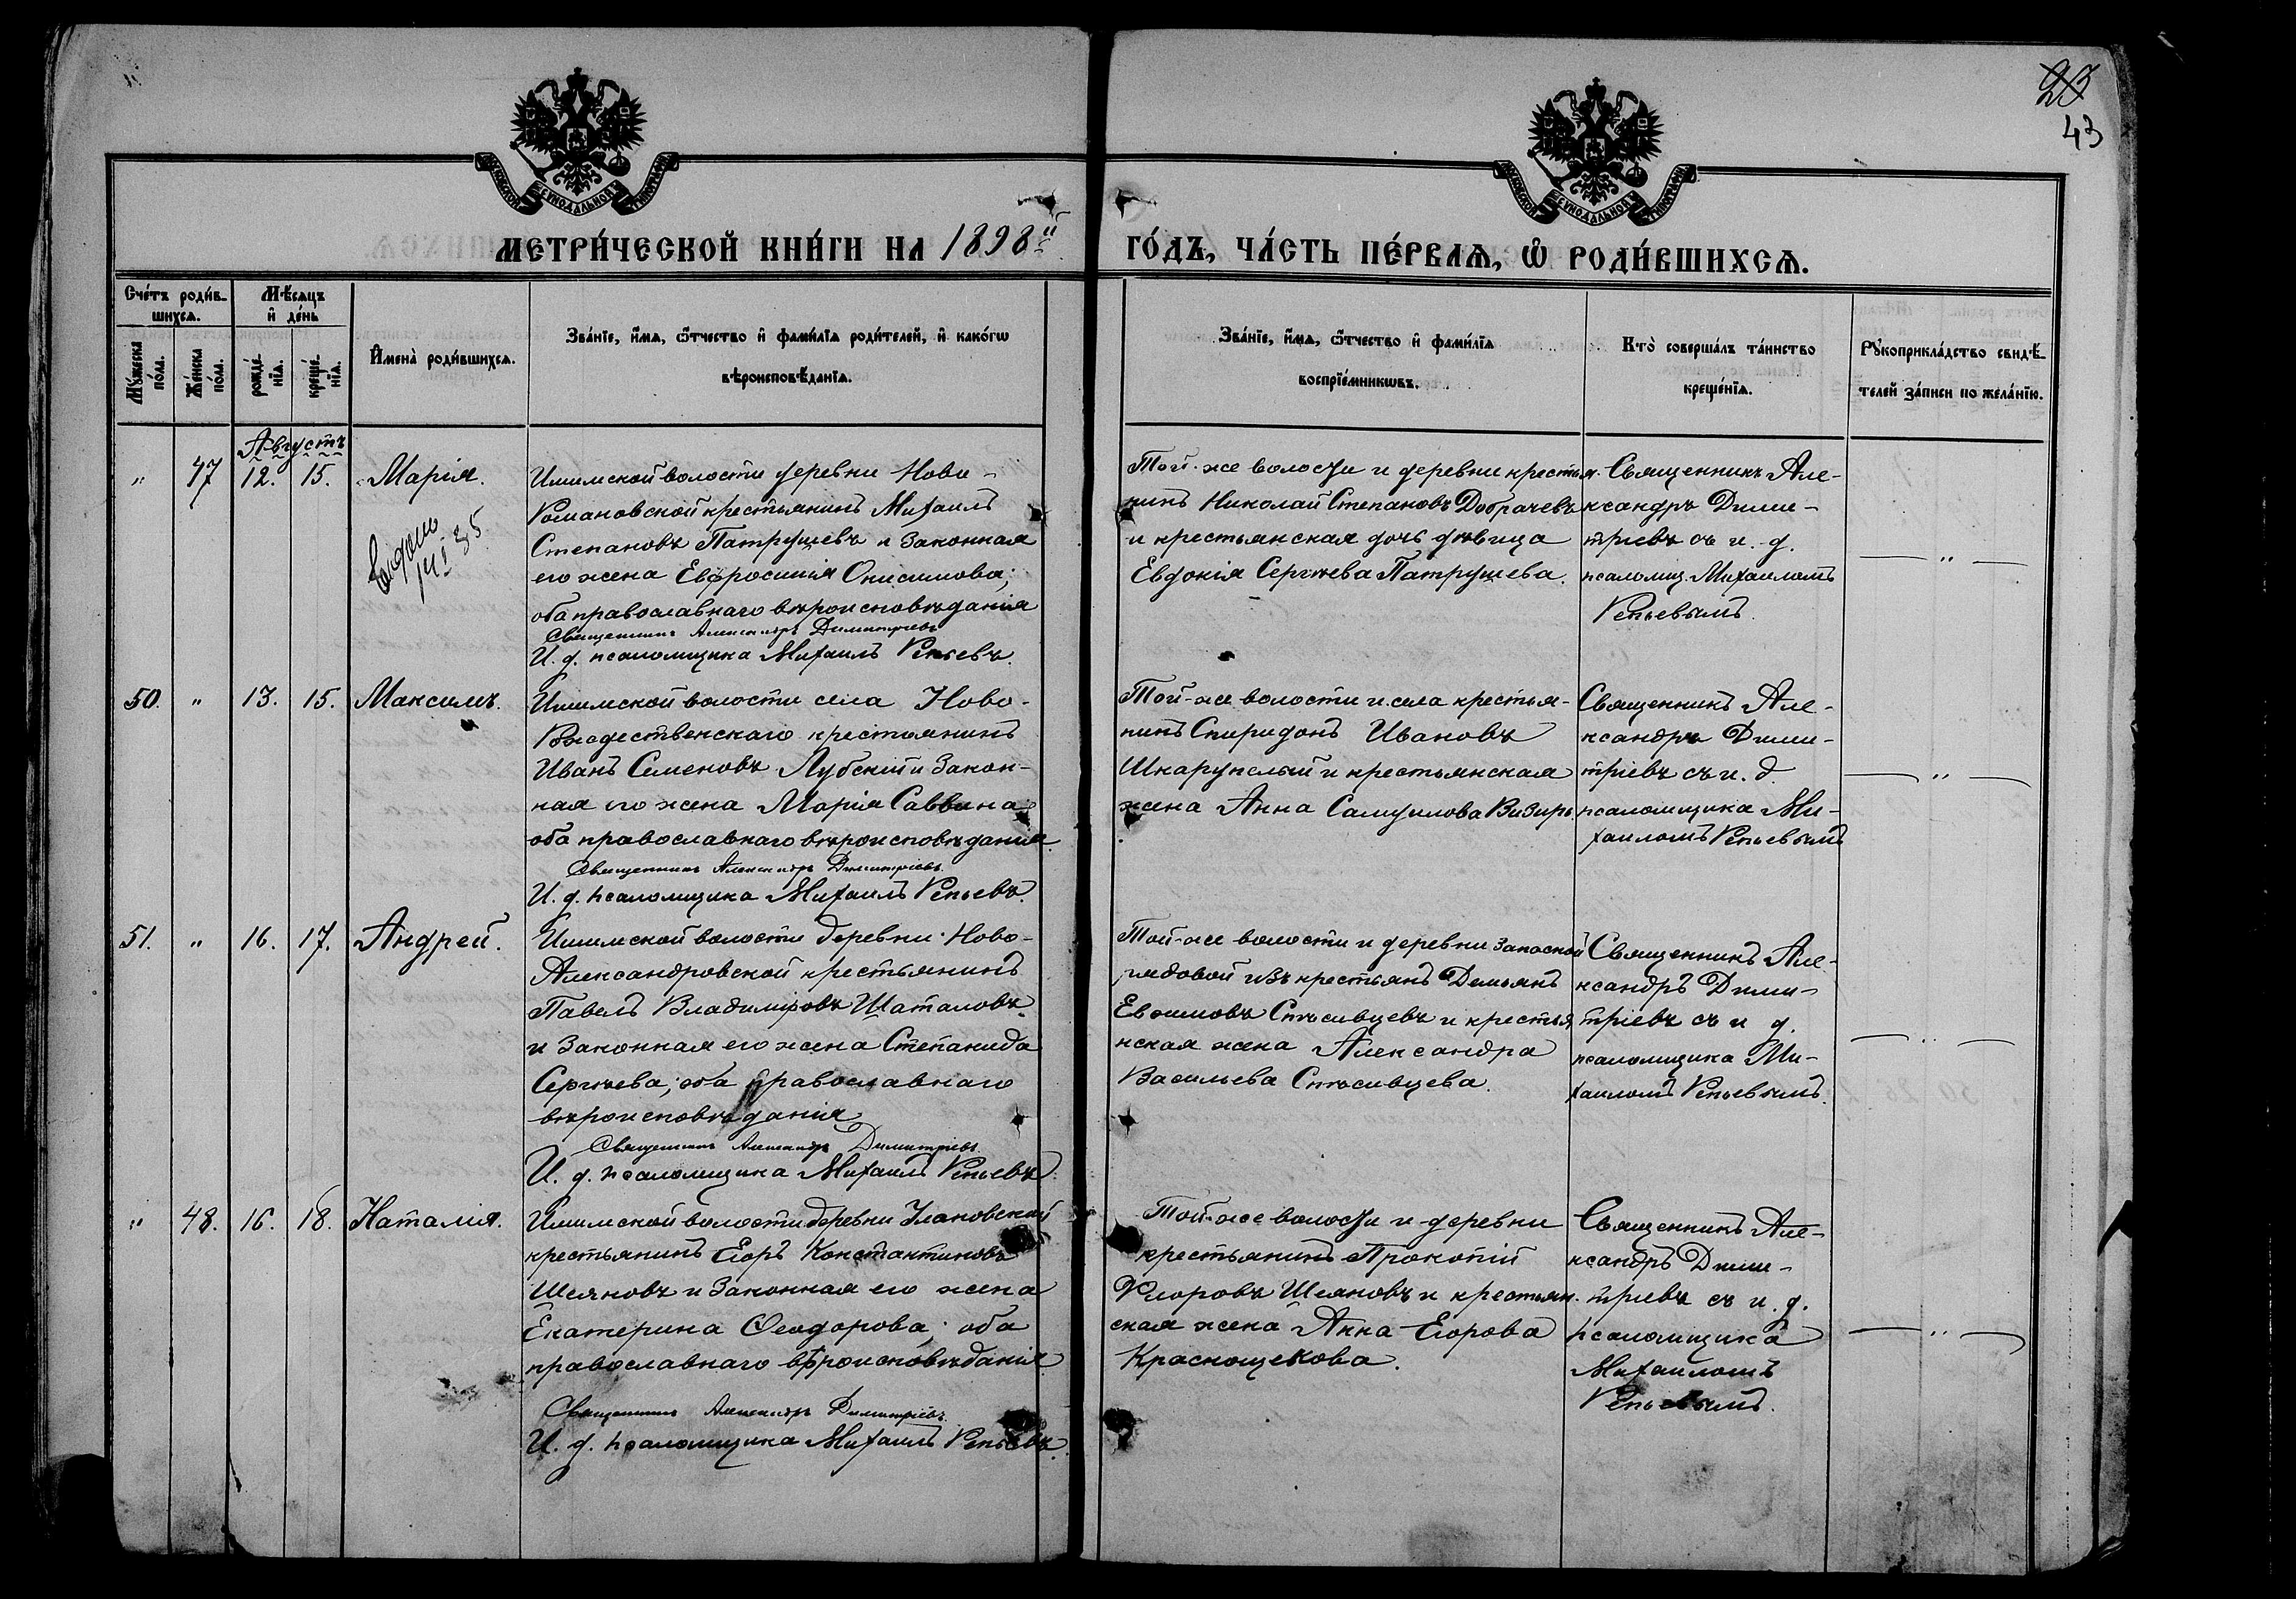 23
43
МЕТРИ́ЧЕСКОЙ КНИ́ГИ НА 1898й ГО́ДЪ, ЧА́СТЬ ПЕ́РВАѦ, Ѿ РОДИ́ВШИХСѦ.
Сче́тъ роди́в-
шихсѧ.
Мѣ́сѧцъ
и҆ де́нь
Мꙋ́жеска
по́ла.
Же́нска
по́ла.
рожде́-
нїѧ.
креще́-
нїѧ.
И҆мена̀ роди́вшихсѧ.
Зва́нїе, и҆́мѧ, ѻ҆́тчество и҆ фами́лїѧ роди́телей, и҆ како́гѡ
вѣроисповѣ́данїѧ.
Зва́нїе, и҆́мѧ, ѻ҆́тчество и҆ фами́лїѧ
воспрїе́мникѡвъ.
Кто̀ соверша́лъ та́инство
креще́нїѧ.
Рꙋкоприкла́дство свидѣ́-
телей за́писи по жела́нїю.
Августъ
" 47 12. 15. Марія.
Ишимской волости деревни Ново-
Романовской крестьянинъ Михаилъ
Степановъ Патрушевъ и законная
его жена Евфросинія Онисимова;
оба православнаго вѣроисповѣданія
Священникъ Александръ Димитріевъ
И. д. псаломщика Михаилъ Репьевъ.
Той-же волости и деревни крестья-
нинъ Николай Степановъ Добрачевъ
и крестьянская дочь дѣвица
Евдокія Сергѣева Патрушева.
Священникъ Але-
ксандръ Дими-
тріевъ съ и. д.
псаломщ. Михаиломъ
Репьевымъ.
50. " 13. 15. Максимъ.
Ишимской волости села Ново-
Рождественскаго крестьянинъ
Иванъ Семеновъ Лубскій и закон-
ная его жена Марія Саввина
оба православнаго вѣроисповѣданія.
Священникъ Александръ Димитріевъ.
И. д. псаломщика Михаилъ Репьевъ.
Той-же волости и села крестья-
нинъ Спиридонъ Ивановъ
Шкарупелый и крестьянская
жена Анна Самуилова Визирь.
Священникъ Але-
ксандръ Дими-
тріевъ съ и. д.
псаломщика Ми-
хаиломъ Репьевымъ
51. " 16. 17. Андрей.
Ишимской волости деревни Ново-
Александровской крестьянинъ
Павелъ Владимировъ Шаталовъ
и законная его жена Степанида
Сергѣева; оба православнаго
вѣроисповѣданія
Священникъ Александръ Димитріевъ.
И. д. псаломщика Михаилъ Репьевъ.
Той-же волости и деревни запасной
рядовой изъ крестьянъ Демьянъ
Евѳимовъ Спѣсивцевъ и крестья
нская жена Александра
Васильева Спѣсивцева.
Священникъ Але-
ксандръ Дими-
тріевъ съ и д.
псаломщика Ми-
хаиломъ Репьевымъ.
" 48. 16. 18. Наталія.
Ишимской волости деревни Улановской
крестьянинъ Егоръ Константиновъ
Шеяновъ и законная его жена
Екатерина Ѳеодорова; оба
православнаго вѣроисповѣданія
Священникъ Александръ Димитріевъ
И. д. псаломщика Михаилъ Репьевъ.
Той-же волости и деревни
крестьянинъ Прокопій
Флоровъ Шеяновъ и крестьян-
ская жена Анна Егорова
Краснощекова.
Священникъ Але-
ксандръ Дими-
тріевъ съ и. д.
псаломщика
Михаиломъ
Репьевымъ.